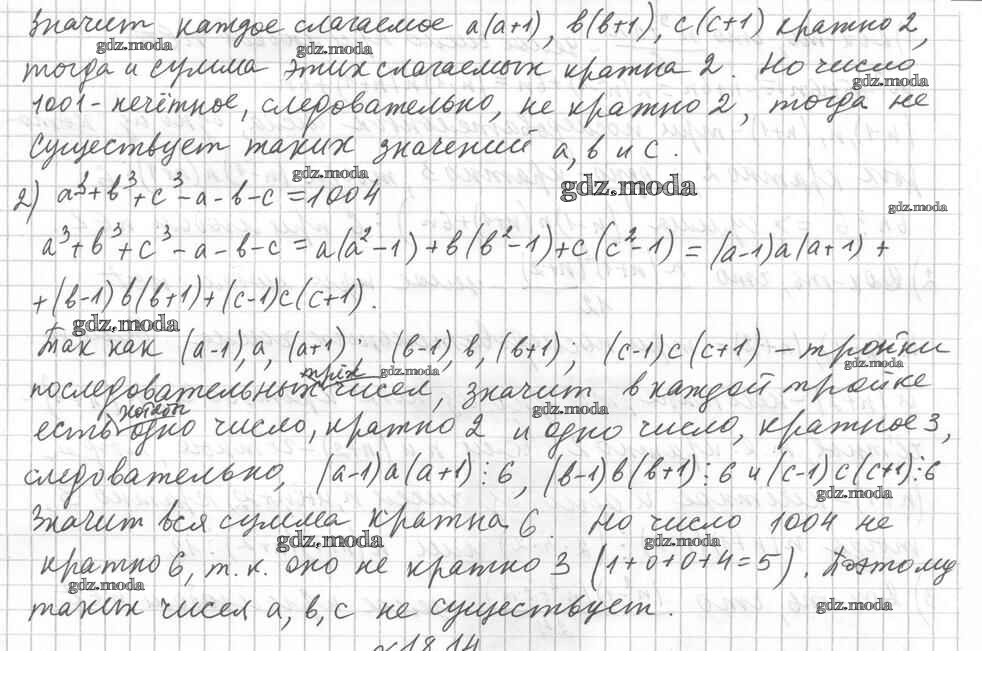 Значит каждое слагаемое a(a+1), в(в+1), c(c+1) кратно 2,
gdz.moda gdz.moda
тогда и сумма этих слагаемых кратна 2. Но число
gdz.moda
1001 - нечётное, следовательно, не кратно 2, тогда не
существует таких значений a, в и c.
gdz.moda gdz.moda
2) a³+в³+c³-a-в-c=1004
gdz.moda
a³+в³+c³-a-в-c=a(a²-1)+в(в²-1)+c(c²-1)=(a-1)a(a+1)+
+(в-1)в(в+1)+(c-1)c(c+1).
gdz.moda
Так как (a-1), a, (a+1); (в-1) в, (в+1); (c-1) c (c+1) – тройки
трёх gdz.moda gdz.moda
последовательных чисел, значит в каждой тройке
хотябы gdz.moda
есть одно число, кратно 2 и одно число, кратное 3,
следовательно, (a-1)a(a+1)⋮6, (в-1)в(в+1)⋮6 и (c-1)c(c+1)⋮6
gdz.moda
Значит вся сумма кратна 6. Но число 1004 не
gdz.moda gdz.moda
кратно 6, т.к. оно не кратно 3 (1+0+0+4=5). Поэтому
gdz.moda
таких чисел a, в, c не существует.
gdz.moda